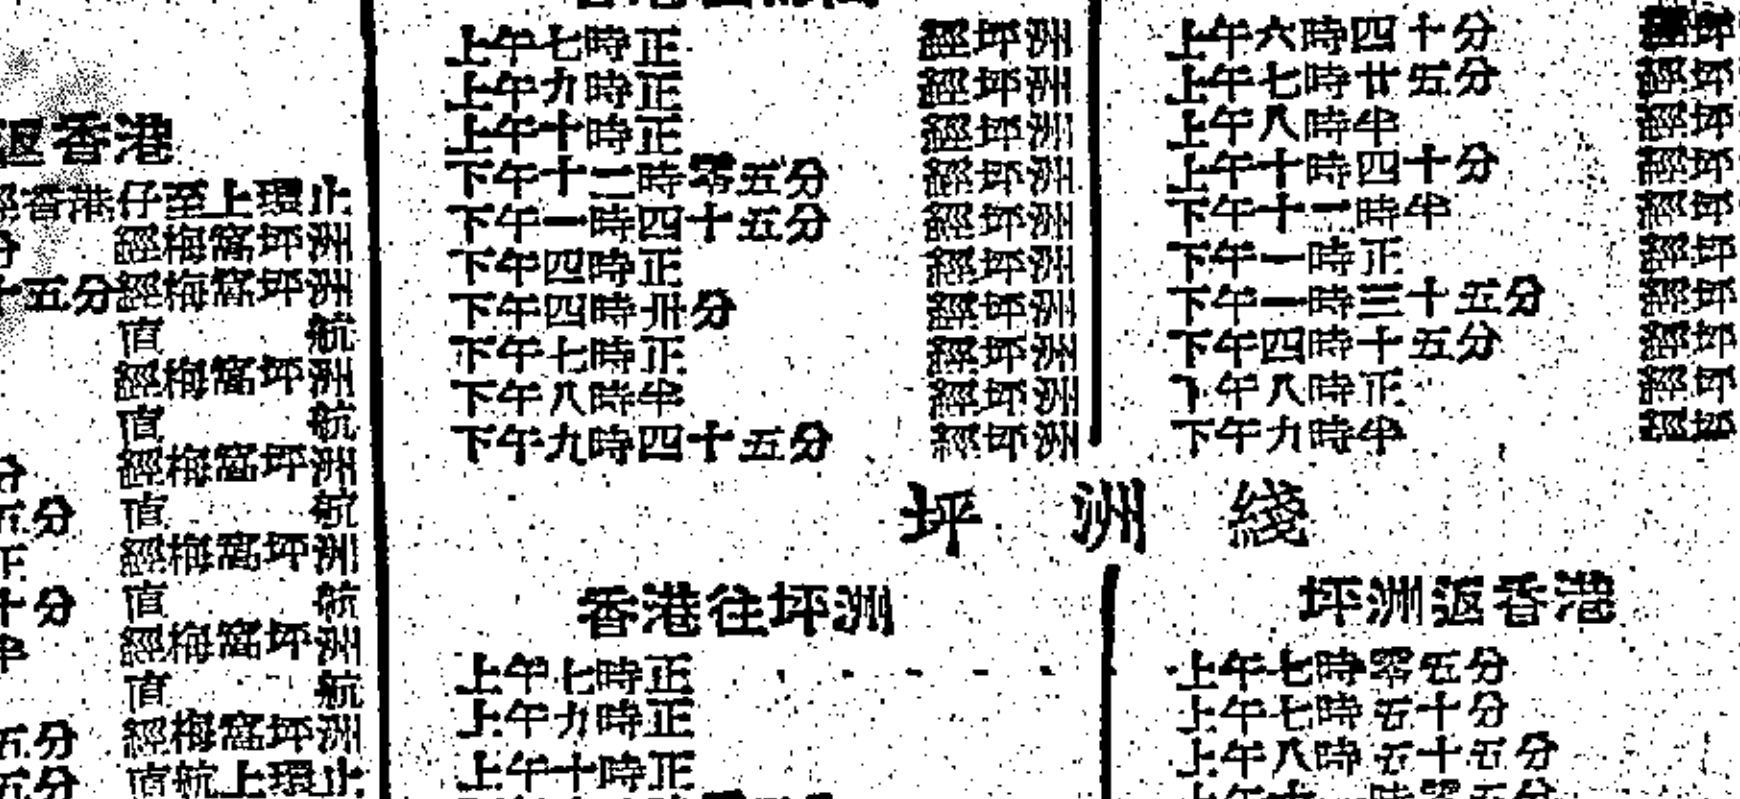 返香港
香港仔至上環止
分 經梅窩坪洲
十五分經梅窩坪洲
直 航
經梅窩坪洲
直 航
分 經梅窩坪洲
五分 直 航
正 經梅窩坪洲
十分 直 航
半 經梅窩坪洲
直 航
五分 經梅窩坪洲
五分 直航上環止
上午七時正 經坪洲
上午九時正 經坪洲
上午十時正 經坪洲
下午十二時零五分 經坪洲
下午一時四十五分 經坪洲
下午四時正 經坪洲
下午四時卅分 經坪洲
下午七時正 經坪洲
下午八時半 經坪洲
下午九時四十五分 經坪洲
上午六時四十分 經坪
上午七時廿五分 經坪
上午八時半 經坪
上午十時四十分 經坪
下午十一時半 經坪
下午一時正 經坪
下午一時三十五分 經坪
下午四時十五分 經坪
下午八時正 經坪
下午九時半 經坪
坪洲綫
香港往坪洲
上午七時正
上午九時正
上午十時正
坪洲返香港
上午七時零五分
上午七時五十分
上午八時五十五分